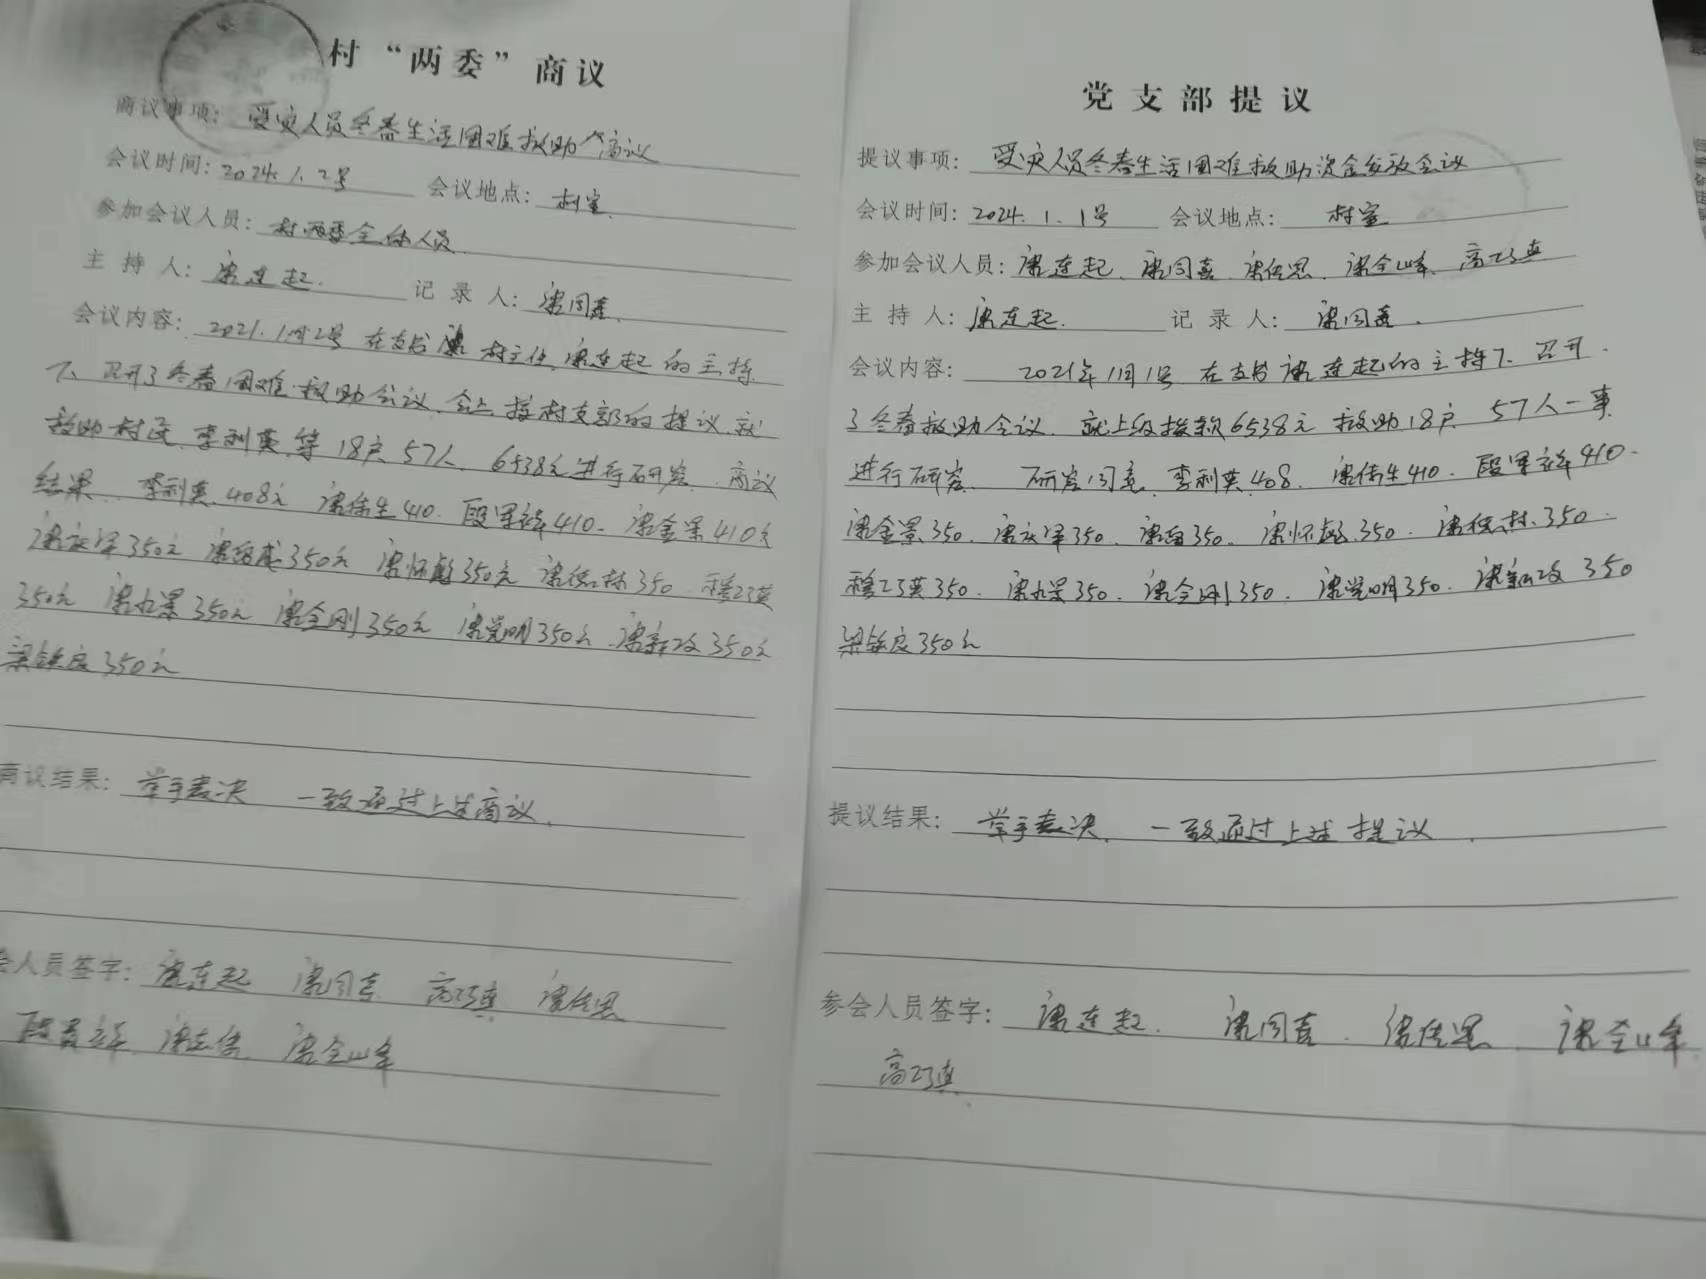 村“两委”商议
商议事项: 受灾人员冬春生活困难救助个商议
会议时间: 2024.1.2号 会议地点: 村室.
参加会议人员: 村两委全体人员.
主 持 人: 梁连起. 记 录 人: 梁同喜.
会议内容: 2021.1月2号 在支书 村主任,梁连起的主持
下、召开了冬春困难救助会议,会上按村支部的提议,就
救助村民,李利英,等18户57人、6538元进行研究、商议
结果、李利英.408元 梁伟生410. 段军 410. 梁金景410元
梁庆军350元 梁 350元 梁怀 350元 梁 林350. 穆巧英
350元 梁 景350元 梁全刚350元 梁党明350元.梁新改350元
梁 良350元
商议结果: 举手表决 一致通过上述商议.
会人员签字: 梁连起 梁同喜 高巧真 梁 思
段 梁 梁全峰
党支部提议
提议事项: 受灾人员冬春生活困难救助资金发放会议
会议时间: 2024.1.1号 会议地点: 村室
参加会议人员: 梁连起、梁同喜、梁 思、梁全峰、高巧真
主 持 人: 梁连起. 记 录 人: 梁同喜.
会议内容: 2021年1月1号 在支书梁连起的主持下、召开.
了冬春救助会议、就上级拨款6538元救助18户 57人一事
进行研究、 研究同意,李利英.408. 梁伟生410. 段军 410.
梁金景350.梁庆军350.梁 350.梁怀 350.梁 林.350.
穆巧英350.梁 景350.梁全刚350.梁党明350.梁新改350
梁 良350元
提议结果: 举手表决, 一致通过上述提议.
参会人员签字: 梁连起. 梁同喜. 梁 思 梁全峰
高巧真.